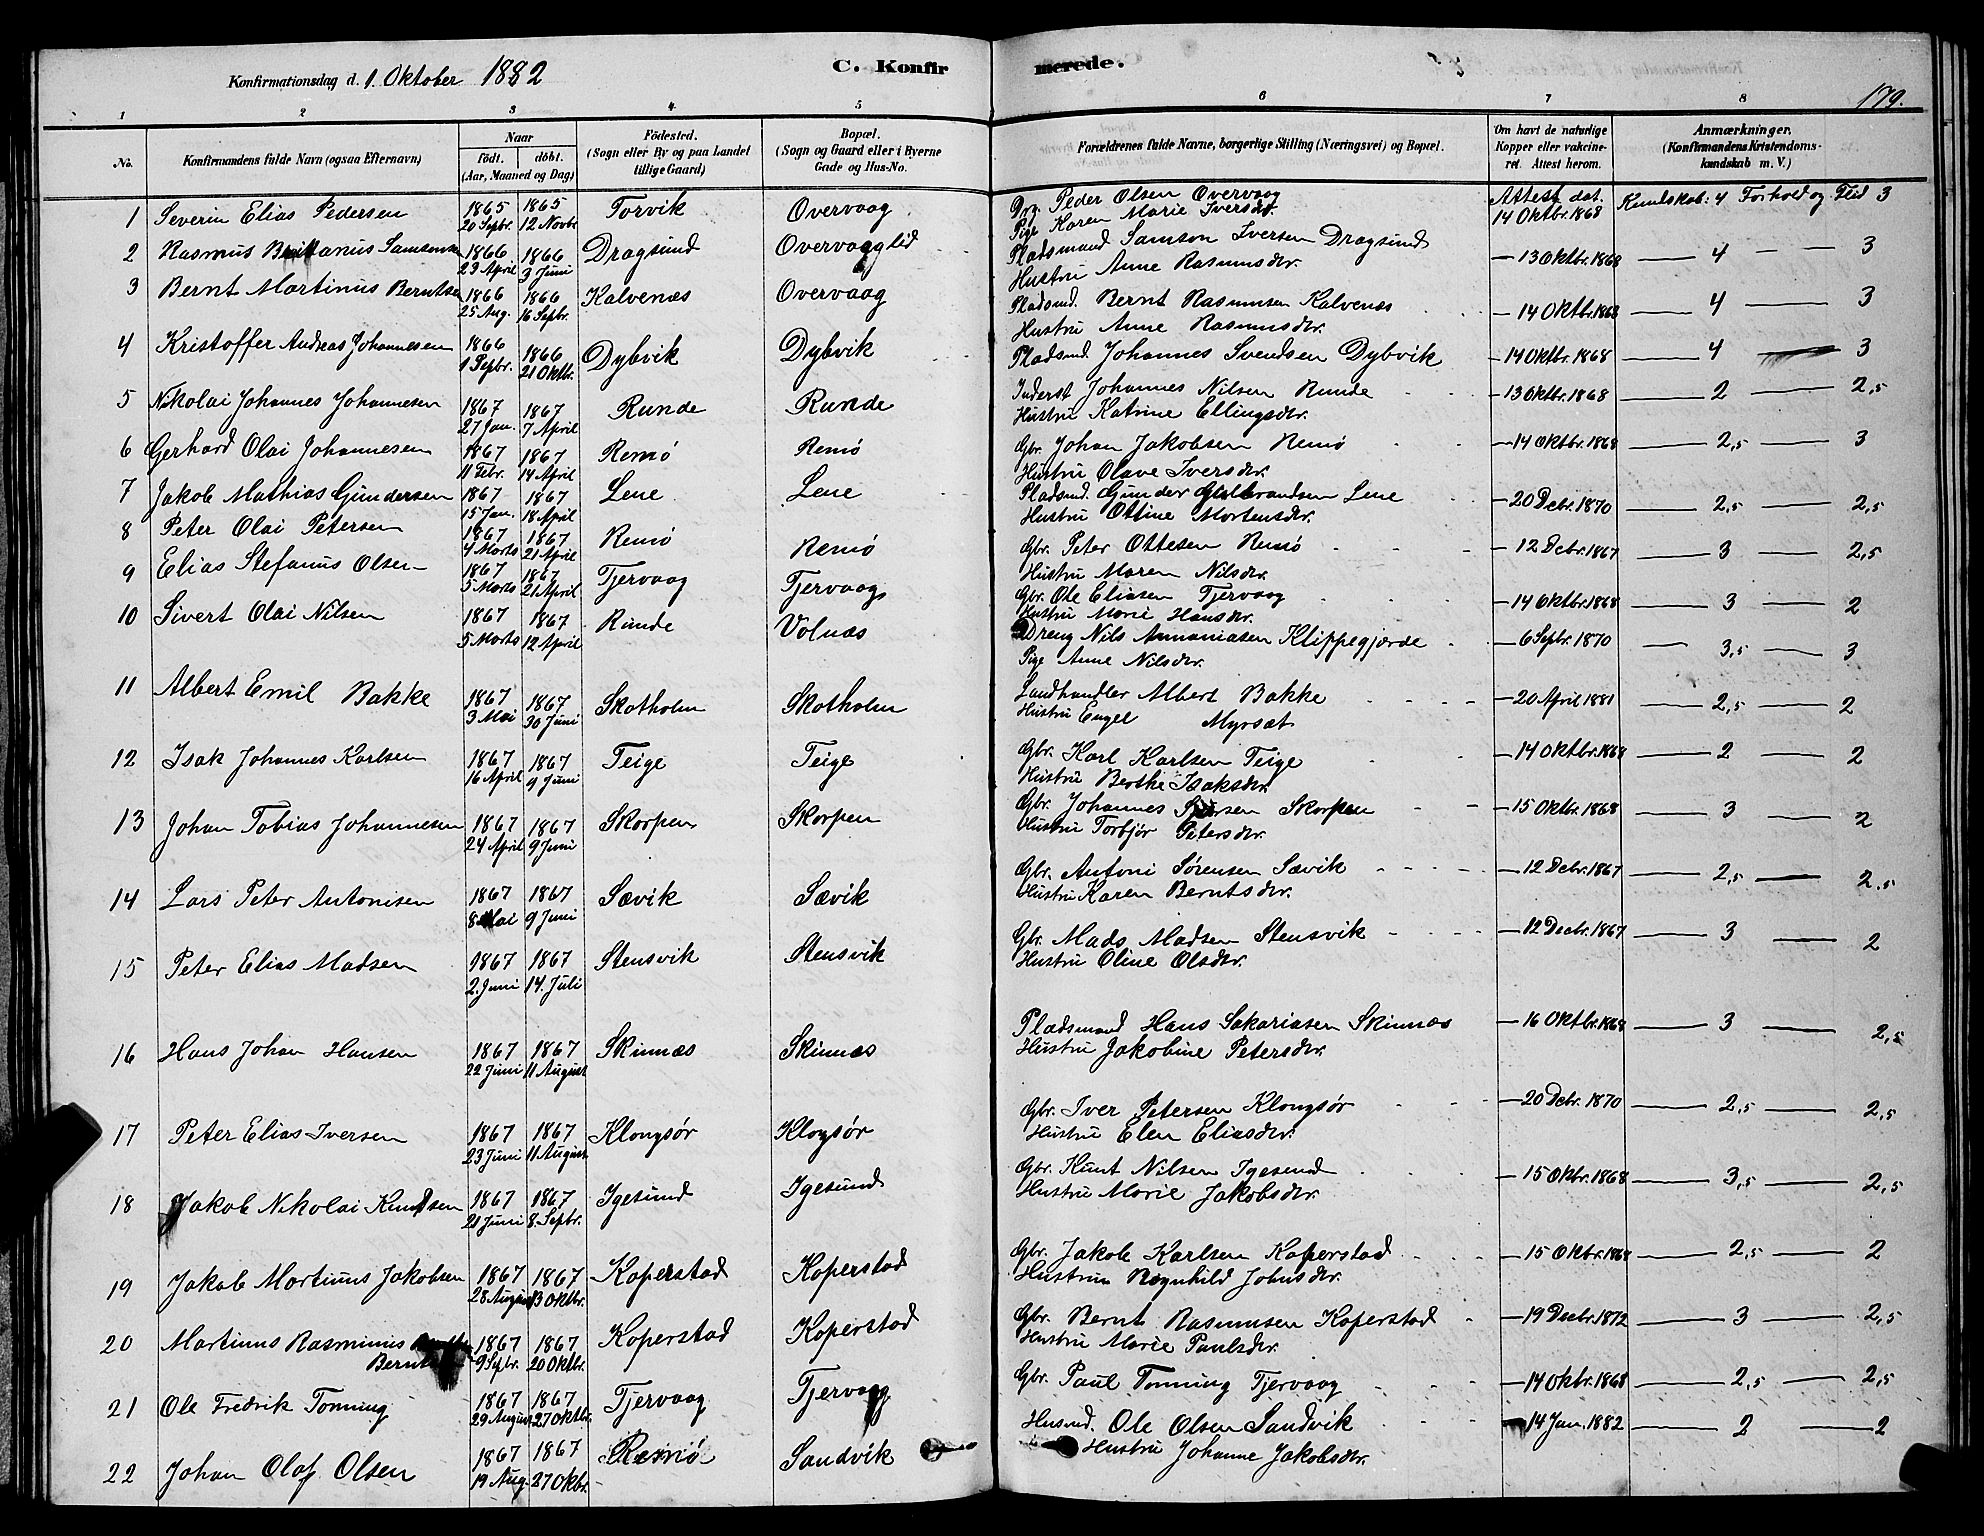 Konfirmationsdag d. 1. Oktober 1882
C. Konfir merede.
179.
1 2 3 4 5 6 7 8
No. Konfirmandens fulde Navn (ogsaa Efternavn) Naar födt. döbt. (Aar, Maaned og Dag) Födested. (Sogn eller By og paa Landet tillige Gaard) Bopæl. (Sogn og Gaard eller i Byerne Gade og Hus-No. Forældrenes fulde Navne, borgerlige Stilling (Næringsvei) og Bopæl. Om havt de naturlige Kopper eller vakcineret. Attest herom. Anmærkninger. (Konfirmandens Kristendomskundskab m. V.)
1 Severin Elias Pedersen 1865 20 Sepbr. 1865 12 Novbr Torvik Overvaag Drg. Peder Olsen Overvaag Attest dat. 14 Oktbr. 1868 Kundskab: 4 Forhold og Flid 3
Pige Karen Marie Iversdr.
2 Rasmus Samsonsen 1866 23 April 1866 3 Juni Dragsund Overvaagslid Pladsmand Samson Iversen Dragsund — 13 Oktbr. 1868 — 4 — 3
Hustru Anne Rasmusdr.
3 Bernt Martinus Berntsen 1866 25 Aug. 1866 16 Sepbr. Kalvenæs Overvaag Pladsmd. Bernt Rasmusen Kalvenæs — 14 Oktbr. 1868 — 4 — 3
Hustru Anne Rasmusdr.
4 Kristoffer Andreas Johannesen 1866 1 Sepbr. 1866 21 Oktbr. Dybvik Dybvik Pladsmd. Johannes Svendsen Dybvik — 14 Oktbr. 1868 — 4 — 3
5 Nikolai Johannes Johannesen 1867 27 Jan. 1867 7 April Runde Runde Inderst Johannes Nilsen Runde — 13 Oktbr. 1868 — 2 — 2,5
Hustru Katrine Ellingsdr.
6 Gerhard Olai Johannesen 1867 11 Febr. 1867 14 April Remö Remö Gbr. Johan Jakobsen Remö — 14 Oktbr. 1868 — 2,5 — 3
Hustru Olave Iversdr.
7 Jakob Mathias Gundersen 1867 15 Jan. 1867 18 April Lene Lene Pladsmd. Gunder Gulbrandsen Lene — 20 Debr. 1870 — 2,5 — 2,5
Hustru Ottine Mortensdr.
8 Peter Olai Petersen 1867 4 Marts 1867 21 April Remö Remö Gbr. Peter Ottesen Remö — 12 Debr. 1867 — 3 — 2,5
Hustru Maren Nilsdr.
9 Elias Stefanus Olsen 1867 5 Marts 1867 21 April Tjervaag Tjervaag Gbr. Ole Eliasen Tjervaag — 14 Oktbr. 1868 — 3 — 2
Hustru Marie Hansdr.
10 Sivert Olai Nilsen 1867 5 Marts 1867 12 April Runde Volnæs Dreng Nils Annaniasen Klippegjærde — 6 Sepbr. 1870 — 3,5 — 3
Pige Anne Nilsdr.
11 Albert Emil Bakke 1867 3 Mai 1867 30 Juni Skotholm Skotholm Landhandler Albert Bakke — 20 April 1881 — 2,5 — 2
Hustru Engel Myrsæt
12 Isak Johannes Karlsen 1867 16 April 1867 9 Juni Teige Teige Gbr. Karl Karlsen Teige — 14 Oktbr. 1868 — 2 — 2
Hustru Berthe Isaksdr.
13 Johan Tobias Johannesen 1867 24 April 1867 9 Juni Skorpen Skorpen Gbr. Johannes Skorpen — 15 Oktbr. 1868 — 3 — 2
Hustru Torbjör Petersdr.
14 Lars Peter Antonisen 1867 8 Mai 1867 9 Juni Sævik Sævik Gbr. Antoni Sörensen Sævik — 12 Debr. 1867 — 2,5 — 2,5
Hustru Karen Berntsdr.
15 Peter Elias Madsen 1867 2. Juni 1867 14. Juli Stensvik Stensvik Gbr. Mads Madsen Stensvik — 12 Decbr. 1867 — 3 — 2
Hustru Oline Olsdr.
16 Hans Johan Hansen 1867 22 Juni 1867 11 August Skinnæs Skinnæs Pladsmand Hans Sakariasen Skinnæs — 16 Oktbr. 1868 — 3 — 2,5
Hustru Jakobine Petersdr.
17 Peter Elias Iversen 1867 23 Juni 1867 11 August Klongsör Klogsör Gbr. Iver Petersen Klongsör — 20 Debr. 1870 — 2,5 — 2,5
Hustru Elen Eliasdr.
18 Jakob Nikolai Knudsen 1867 21 Juni 1867 8. Sepbr. Igesund Igesund Gbr. Knut Nilsen Igesund — 15 Oktbr. 1868 — 3,5 — 2,5
Hustru Marie Jakobsdr.
19 Jakob Martinus Jakobsen 1867 28 August 1867 13 Oktbr. Koperstad Koperstad Gbr. Jakob Karlsen Koperstad — 15 Oktbr. 1868 — 2,5 — 2
Hustru Ragnhild Johnsdr.
20 Martinus Rasmus 1867 9 Sepbr. 1867 20 Oktbr. Koperstad Koperstad Gbr. Bernt Rasmusen Koperstad — 19 Decbr. 1872 — 3 — 2,5
Hustru Marie Paulsdr.
21 Ole Fredrik Tonning 1867 29 August 1867 27 Oktbr. Tjervaag Tjervaag Gbr. Paul Tonning Tjervaag — 14 Oktbr. 1868 — 2,5 — 2,5
22 Johan Olaf Olsen 1867 19 Aug. 1867 27 Oktbr. Remö Sandvik Husmd. Ole Olsen Sandvik — 14 Jan. 1882 — 2 — 2
Hustru Johanne Jakobsdr.